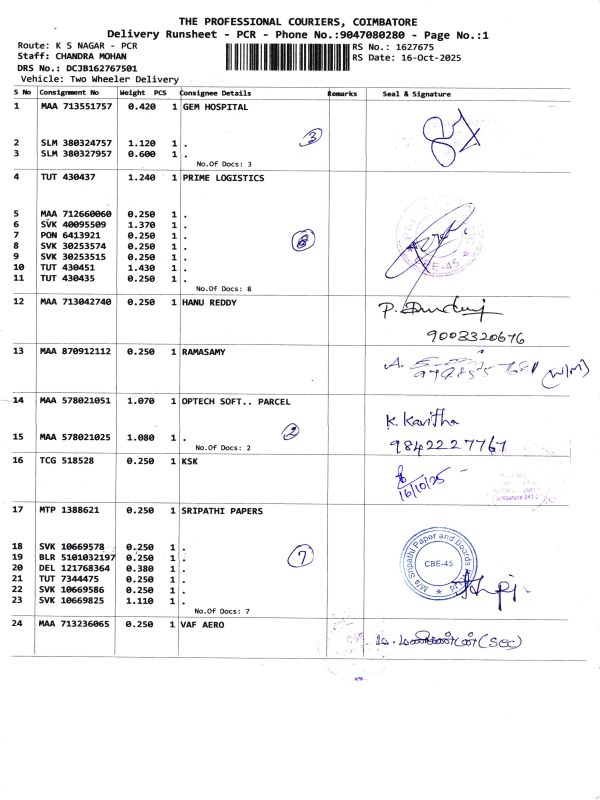 THE PROFESSIONAL COURIERS, COIMBATORE
Delivery Runsheet - PCR - Phone No.:9047080280 - Page No.:1
Route: K S NAGAR - PCR RS No.: 1627675
Staff: CHANDRA MOHAN RS Date: 16-Oct-2025
DRS No.: DCJB162767501
Vehicle: Two Wheeler Delivery
S No Consignment No Weight PCS Consignee Details Remarks Seal & Signature
1 MAA 713551757 0.420 1 GEM HOSPITAL
2 SLM 380324757 1.120 1 . 3
3 SLM 380327957 0.600 1 .
No.Of Docs: 3
4 TUT 430437 1.240 1 PRIME LOGISTICS
5 MAA 712660060 0.250 1 .
6 SVK 40095509 1.370 1 .
7 PON 6413921 0.250 1 .
8 SVK 30253574 0.250 1 .
9 SVK 30253515 0.250 1 .
10 TUT 430451 1.430 1 .
11 TUT 430435 0.250 1 .
No.Of Docs: 8
CBE-45
12 MAA 713042740 0.250 1 HANU REDDY
9003320676
13 MAA 870912112 0.250 1 RAMASAMY
A. (W/M)
14 MAA 578021051 1.070 1 OPTECH SOFT.. PARCEL
K. Kavitha
2
15 MAA 578021025 1.080 1 . 9842227767
No.Of Docs: 2
16 TCG 518528 0.250 1 KSK
16/10/25
17 MTP 1388621 0.250 1 SRIPATHI PAPERS
18 SVK 10669578 0.250 1 .
19 BLR 5101032197 0.250 1 . 7
20 DEL 121768364 0.380 1 .
21 TUT 7344475 0.250 1 .
22 SVK 10669586 0.250 1 .
23 SVK 10669825 1.110 1 .
No.Of Docs: 7
M/s Sripathi Paper and Boards
CBE-45
24 MAA 713236065 0.250 1 VAF AERO
(SEC)